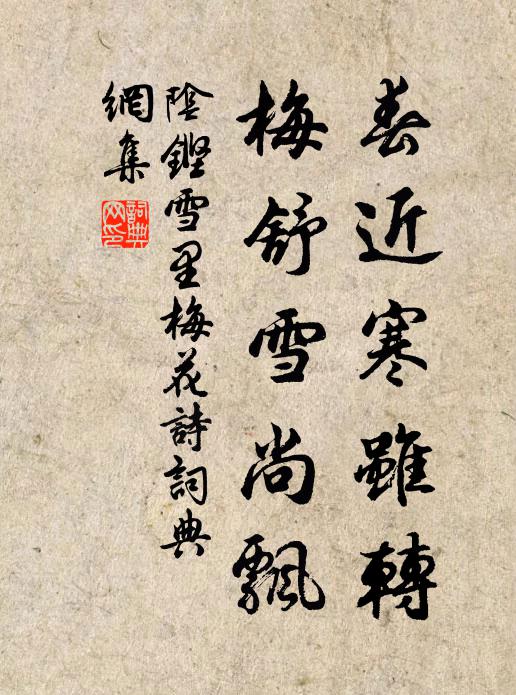 春近寒雖轉
梅舒雪尚飄
陰鏗雪里梅花詩詞典
網集
詞典
网印